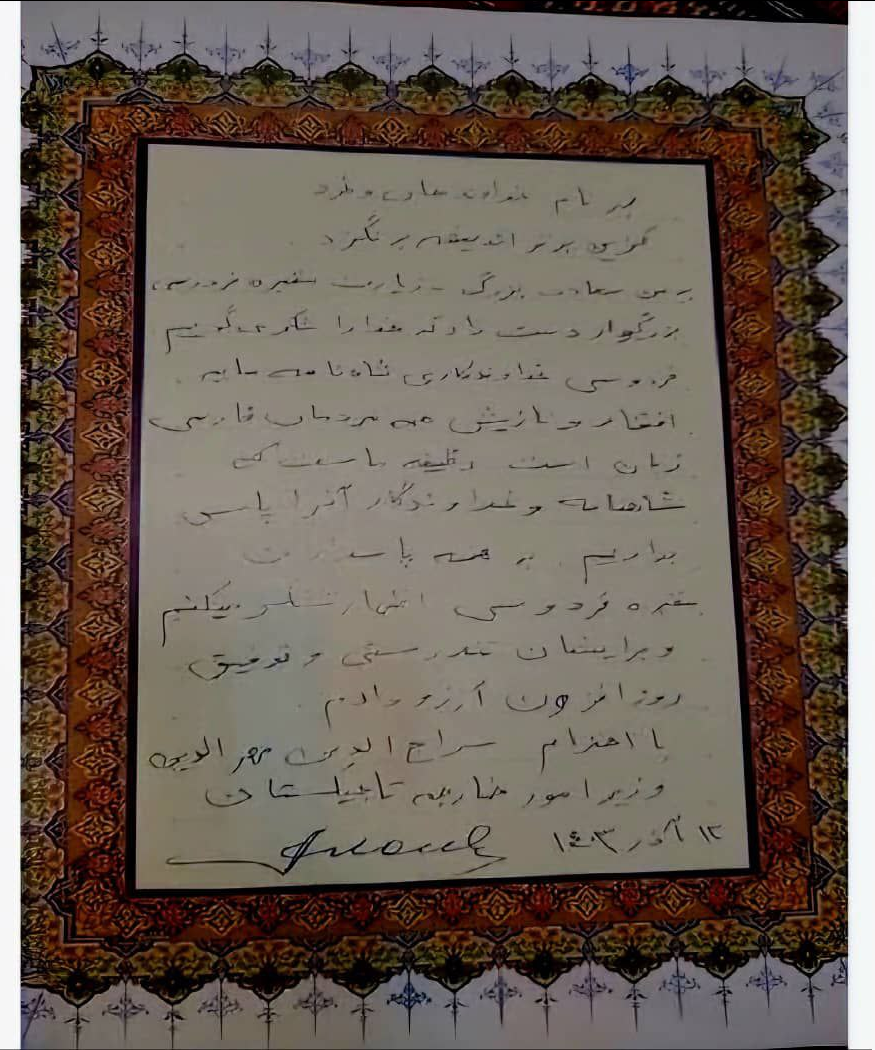 به نام خداوند جان و خرد
کزین برتر اندیشه برنگزرد
بر من سعادت بزرگ زیارت مقبره فردوسی
بزرگوار دست داد که خدا را شکر می‌گویم
فردوسی خداوندگاری شاه نامه مایه
افتخار و نازیش همه مردمان فارسی
زبان است وظیفه ماست که
شاهنامه و خداوندگار آنرا پاس
بداریم به همه پاسداران
مقبره فردوسی اظهار تشکر میکنم
و برایشان تندرستی و توفیق
روز افزون آرزو دارم
با احترام سراج الدین مهر الدین
وزیر امور خارجه تاجیکستان
۱۲ آذر ۱۴۰۳